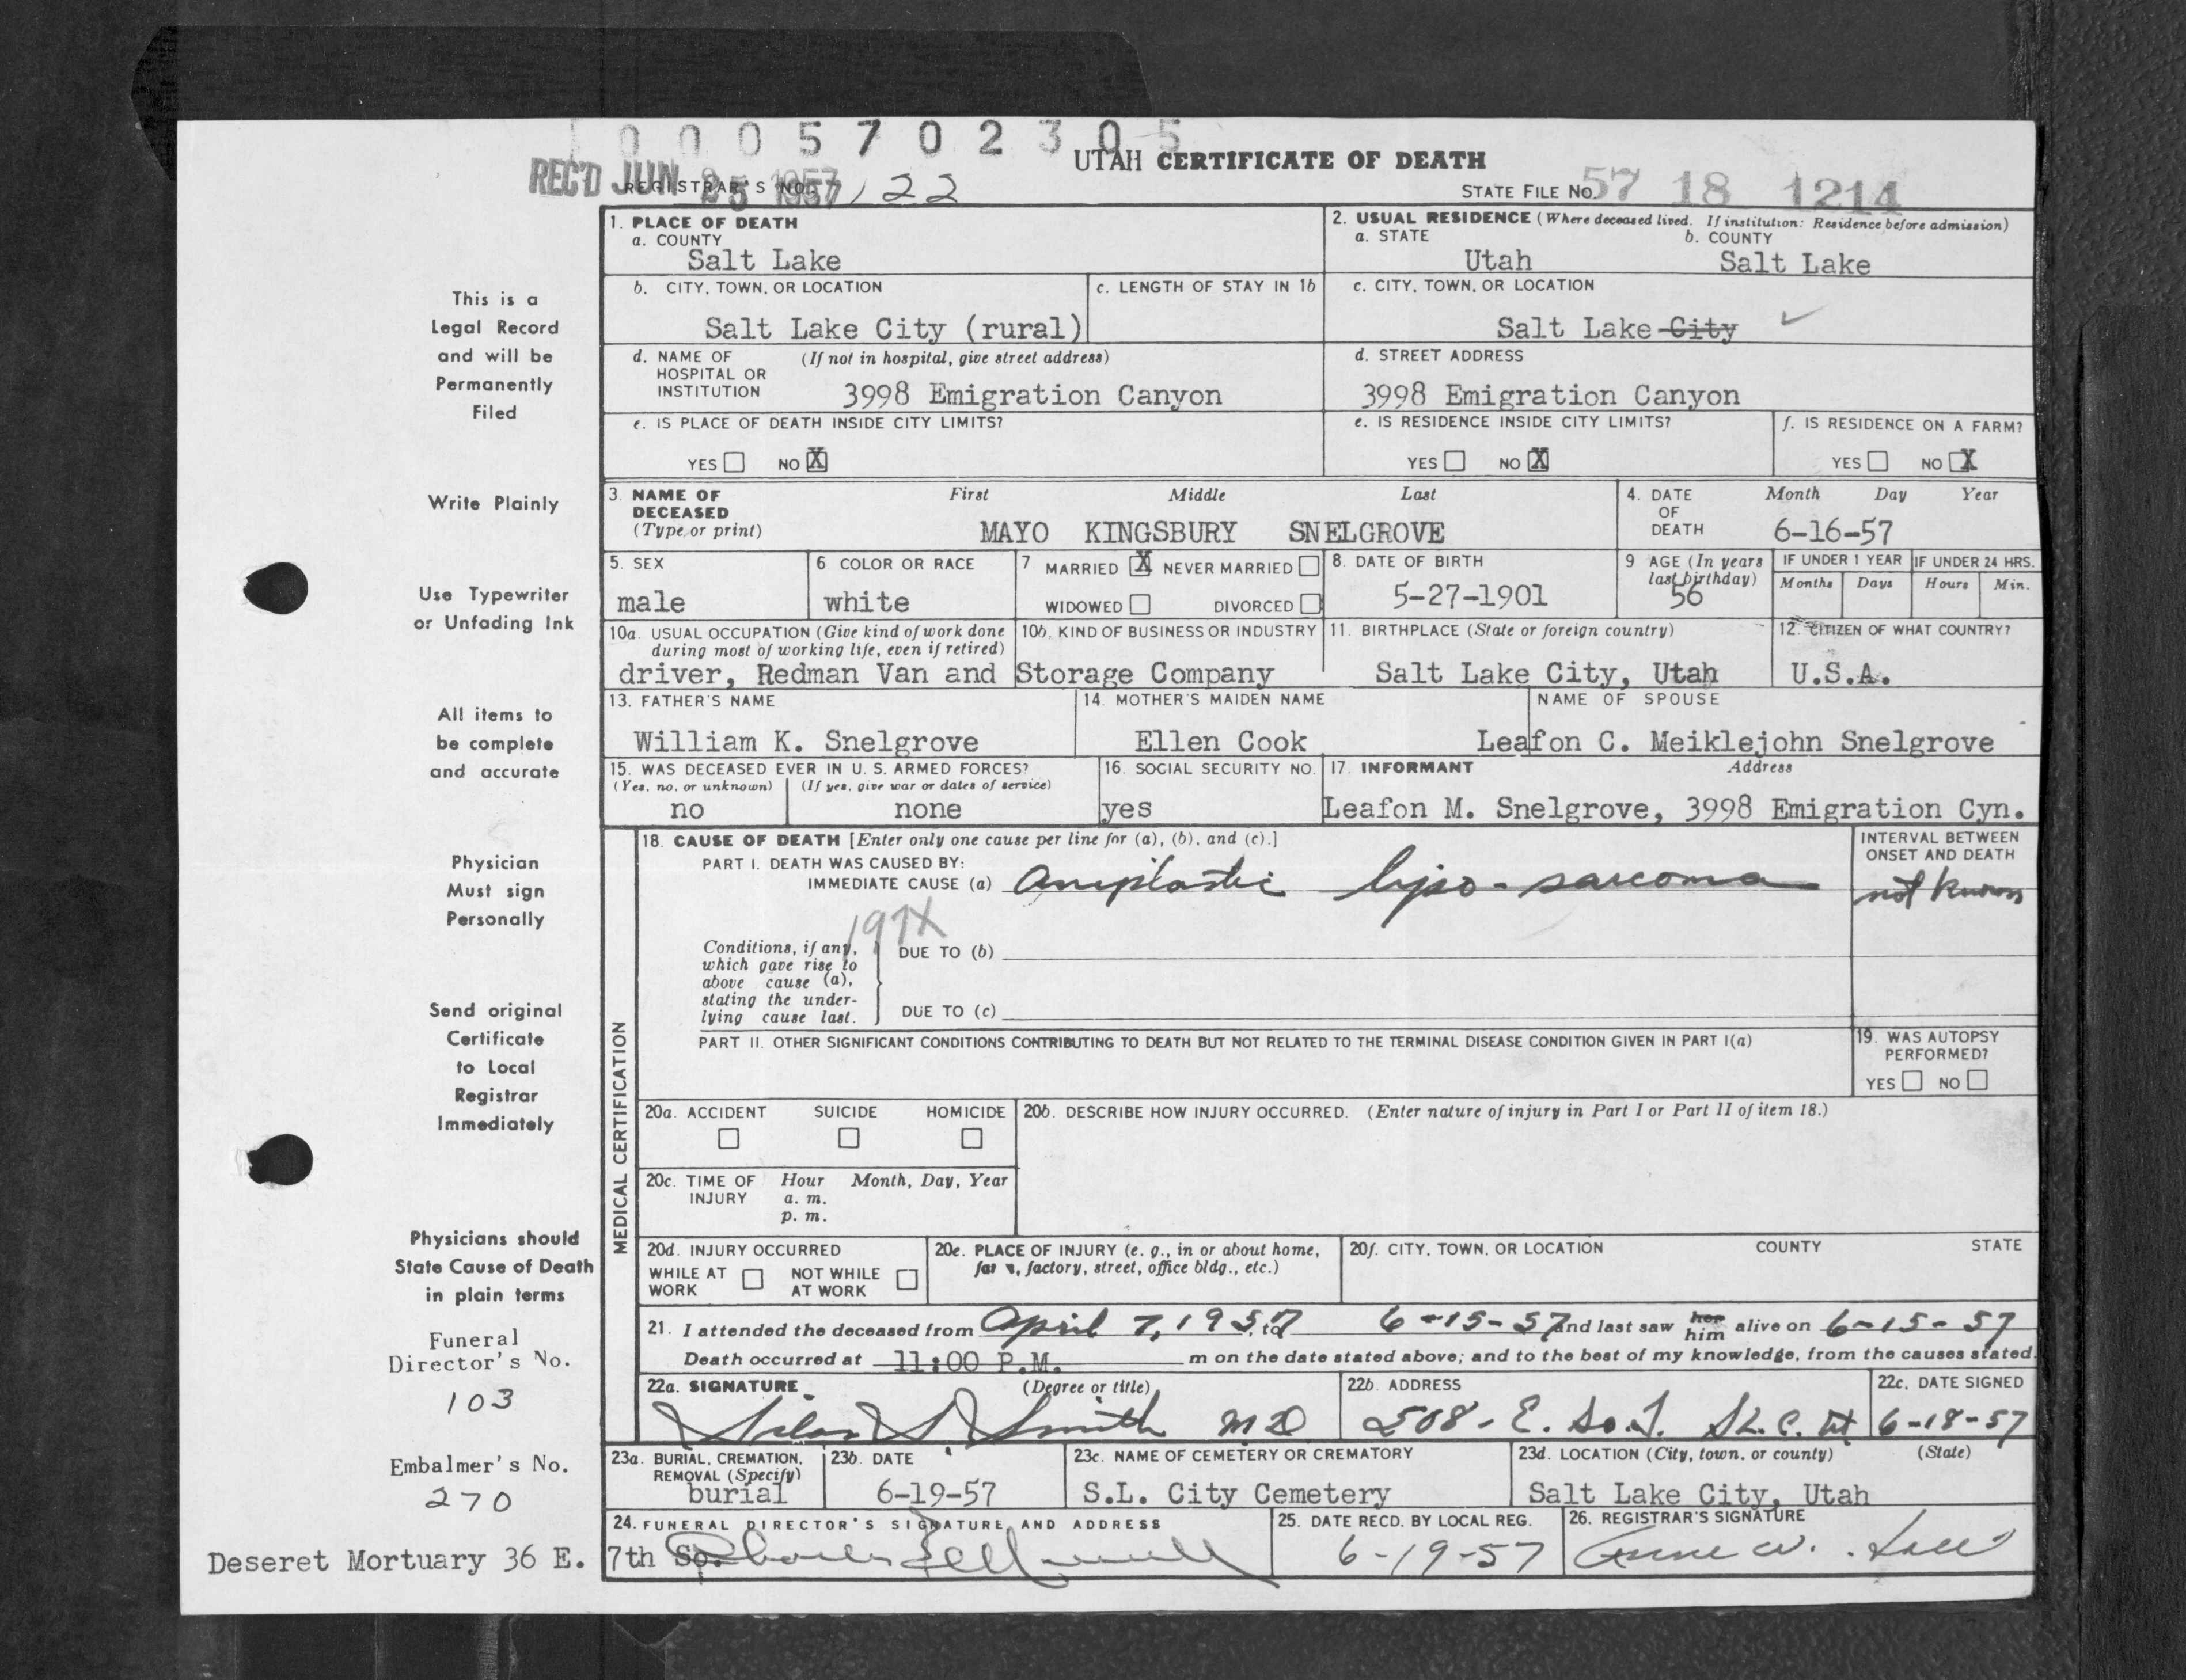 0005702305
UTAH CERTIFICATE OF DEATH
REC'D JUN 25 1957
REGISTRAR'S NO. 122
STATE FILE NO. 57 18 1214
This is a
Legal Record
and will be
Permanently
Filed
Write Plainly
Use Typewriter
or Unfading Ink
All items to
be complete
and accurate
Physician
Must sign
Personally
Send original
Certificate
to Local
Registrar
Immediately
Physicians should
State Cause of Death
in plain terms
Funeral
Director's No.
103
Embalmer's No.
270
1. PLACE OF DEATH
a. COUNTY
Salt Lake
2. USUAL RESIDENCE (Where deceased lived. If institution: Residence before admission)
a. STATE b. COUNTY
Utah Salt Lake
b. CITY, TOWN, OR LOCATION
Salt Lake City (rural)
c. LENGTH OF STAY IN 1b
c. CITY, TOWN, OR LOCATION
Salt Lake City
d. NAME OF (If not in hospital, give street address)
HOSPITAL OR
INSTITUTION 3998 Emigration Canyon
d. STREET ADDRESS
3998 Emigration Canyon
e. IS PLACE OF DEATH INSIDE CITY LIMITS?
YES NO X
e. IS RESIDENCE INSIDE CITY LIMITS?
YES NO X
f. IS RESIDENCE ON A FARM?
YES NO X
3. NAME OF First Middle Last
DECEASED
(Type or print) MAYO KINGSBURY SNELGROVE
4. DATE Month Day Year
OF
DEATH 6-16-57
5. SEX
male
6 COLOR OR RACE
white
7 MARRIED X NEVER MARRIED
WIDOWED DIVORCED
8. DATE OF BIRTH
5-27-1901
9 AGE (In years
last birthday)
56
IF UNDER 1 YEAR IF UNDER 24 HRS.
Months Days Hours Min.
10a. USUAL OCCUPATION (Give kind of work done
during most of working life, even if retired)
10b. KIND OF BUSINESS OR INDUSTRY
driver, Redman Van and Storage Company
11. BIRTHPLACE (State or foreign country)
Salt Lake City, Utah
12. CITIZEN OF WHAT COUNTRY?
U.S.A.
13. FATHER'S NAME
William K. Snelgrove
14. MOTHER'S MAIDEN NAME
Ellen Cook
NAME OF SPOUSE
Leafon C. Meiklejohn Snelgrove
15. WAS DECEASED EVER IN U. S. ARMED FORCES?
(Yes, no, or unknown) (If yes, give war or dates of service)
no none
16. SOCIAL SECURITY NO.
yes
17. INFORMANT Address
Leafon M. Snelgrove, 3998 Emigration Cyn.
MEDICAL CERTIFICATION
18. CAUSE OF DEATH [Enter only one cause per line for (a), (b), and (c).]
PART I. DEATH WAS CAUSED BY:
IMMEDIATE CAUSE (a) Anaplastic lipo-sarcoma
INTERVAL BETWEEN
ONSET AND DEATH
not known
197X
Conditions, if any,
which gave rise to
above cause (a),
stating the under-
lying cause last.
DUE TO (b)
DUE TO (c)
PART II. OTHER SIGNIFICANT CONDITIONS CONTRIBUTING TO DEATH BUT NOT RELATED TO THE TERMINAL DISEASE CONDITION GIVEN IN PART I(a)
19. WAS AUTOPSY
PERFORMED?
YES NO
20a. ACCIDENT SUICIDE HOMICIDE
20b. DESCRIBE HOW INJURY OCCURRED. (Enter nature of injury in Part I or Part II of item 18.)
20c. TIME OF Hour Month, Day, Year
INJURY a. m.
p. m.
20d. INJURY OCCURRED
WHILE AT NOT WHILE
WORK AT WORK
20e. PLACE OF INJURY (e. g., in or about home,
factory, street, office bldg., etc.)
20f. CITY, TOWN, OR LOCATION COUNTY STATE
21. I attended the deceased from April 7, 1957, to 6-15-57 and last saw her him alive on 6-15-57
Death occurred at 11:00 P.M. m on the date stated above; and to the best of my knowledge, from the causes stated.
22a. SIGNATURE (Degree or title)
Silas S. Smith MD
22b. ADDRESS
508-E. So. T. S.L.C. Ut
22c. DATE SIGNED
6-18-57
23a. BURIAL, CREMATION,
REMOVAL (Specify)
burial
23b. DATE
6-19-57
23c. NAME OF CEMETERY OR CREMATORY
S.L. City Cemetery
23d. LOCATION (City, town, or county) (State)
Salt Lake City, Utah
24. FUNERAL DIRECTOR'S SIGNATURE AND ADDRESS
Deseret Mortuary 36 E. 7th So.
25. DATE RECD. BY LOCAL REG.
6-19-57
26. REGISTRAR'S SIGNATURE